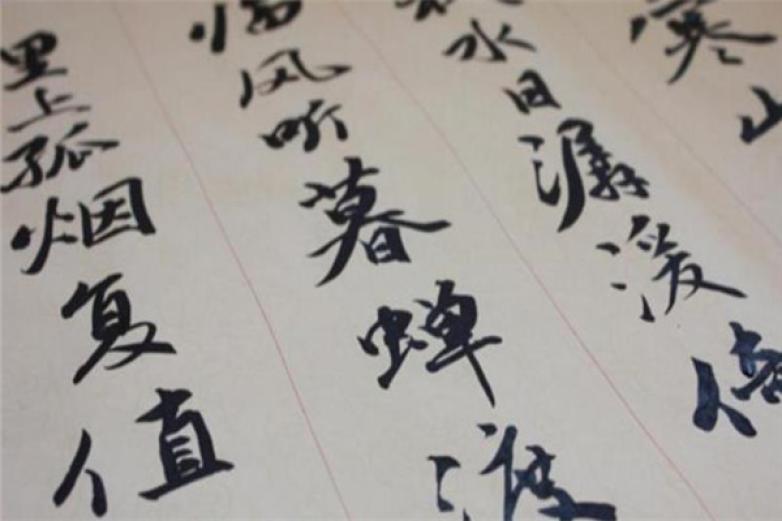 寒山
水日潺湲倚
临风听暮蝉渡
里上孤烟复值